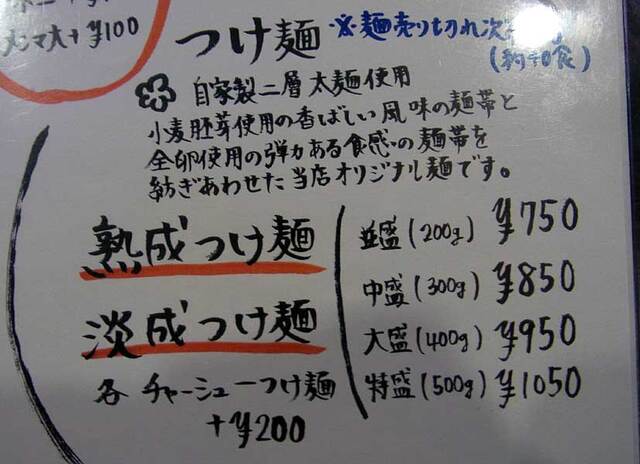 メンマ大+¥100
つけ麺 ※麺売り切れ次
(約40食)
自家製二層太麺使用
小麦胚芽使用の香ばしい風味の麺帯と
全卵使用の弾力ある食感の麺帯を
紡ぎあわせた当店オリジナル麺です。
熟成つけ麺
淡成つけ麺
各チャーシューつけ麺
+¥200
並盛(200g) ¥750
中盛(300g) ¥850
大盛(400g) ¥950
特盛(500g) ¥1050